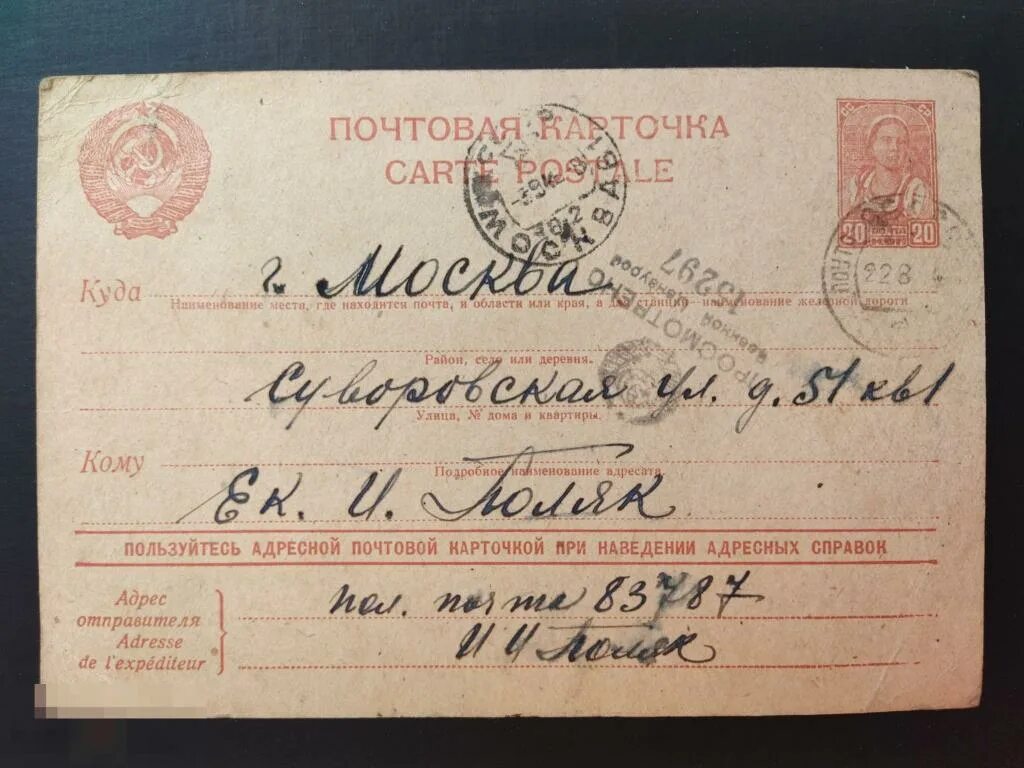 ПОЧТОВАЯ КАРТОЧКА
CARTE POSTALE
20 ПОЧТА 20
Куда г. Москва
Наименование места, где находится почта, и области или края, а для станции—наименование железной дороги
Район, село или деревня.
Суворовская ул. д. 51 кв 1
Улица, № дома и квартиры.
Кому
Подробное наименование адресата
Ек. И. Поляк
ПОЛЬЗУЙТЕСЬ АДРЕСНОЙ ПОЧТОВОЙ КАРТОЧКОЙ ПРИ НАВЕДЕНИИ АДРЕСНЫХ СПРАВОК
Адрес отправителя
Adresse de l'expéditeur
пол. почта 83787
И И Поляк
ПРОСМОТРЕНО
Военной Цензурой
13297
МОСКВА
22 8